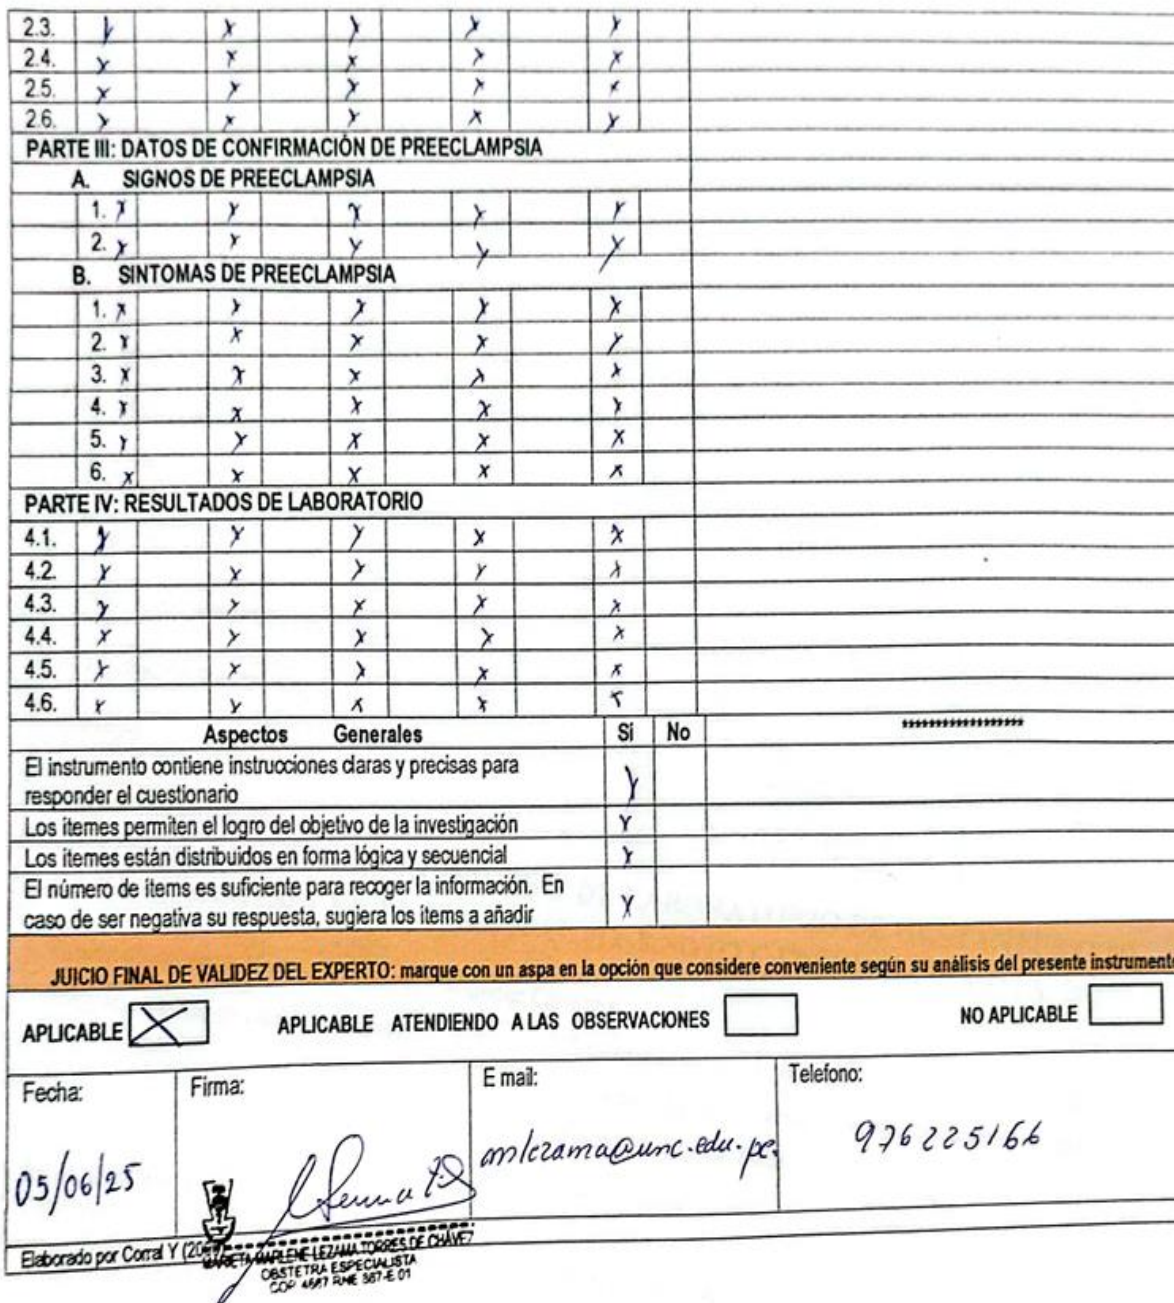 2.3. X X X X X
2.4. X X X X X
2.5. X X X X X
2.6. X X X X X
PARTE III: DATOS DE CONFIRMACIÓN DE PREECLAMPSIA
A. SIGNOS DE PREECLAMPSIA
1. X X X X X
2. X X X X X
B. SINTOMAS DE PREECLAMPSIA
1. X X X X X
2. X X X X X
3. X X X X X
4. X X X X X
5. X X X X X
6. X X X X X
PARTE IV: RESULTADOS DE LABORATORIO
4.1. X X X X X
4.2. X X X X X
4.3. X X X X X
4.4. X X X X X
4.5. X X X X X
4.6. X X X X X
Aspectos Generales Si No ******************
El instrumento contiene instrucciones claras y precisas para
responder el cuestionario X
Los ítemes permiten el logro del objetivo de la investigación X
Los ítemes están distribuidos en forma lógica y secuencial X
El número de ítems es suficiente para recoger la información. En
caso de ser negativa su respuesta, sugiera los ítems a añadir X
JUICIO FINAL DE VALIDEZ DEL EXPERTO: marque con un aspa en la opción que considere conveniente según su análisis del presente instrumento
APLICABLE X APLICABLE ATENDIENDO A LAS OBSERVACIONES NO APLICABLE
Fecha: Firma: E mail: Telefono:
05/06/25 mlezama@unc.edu.pe. 976225166
Elaborado por Corral Y
MARLENE LEZAMA TORRES DE CHÁVEZ
OBSTETRA ESPECIALISTA
COP 4567 RNE 367-E 01